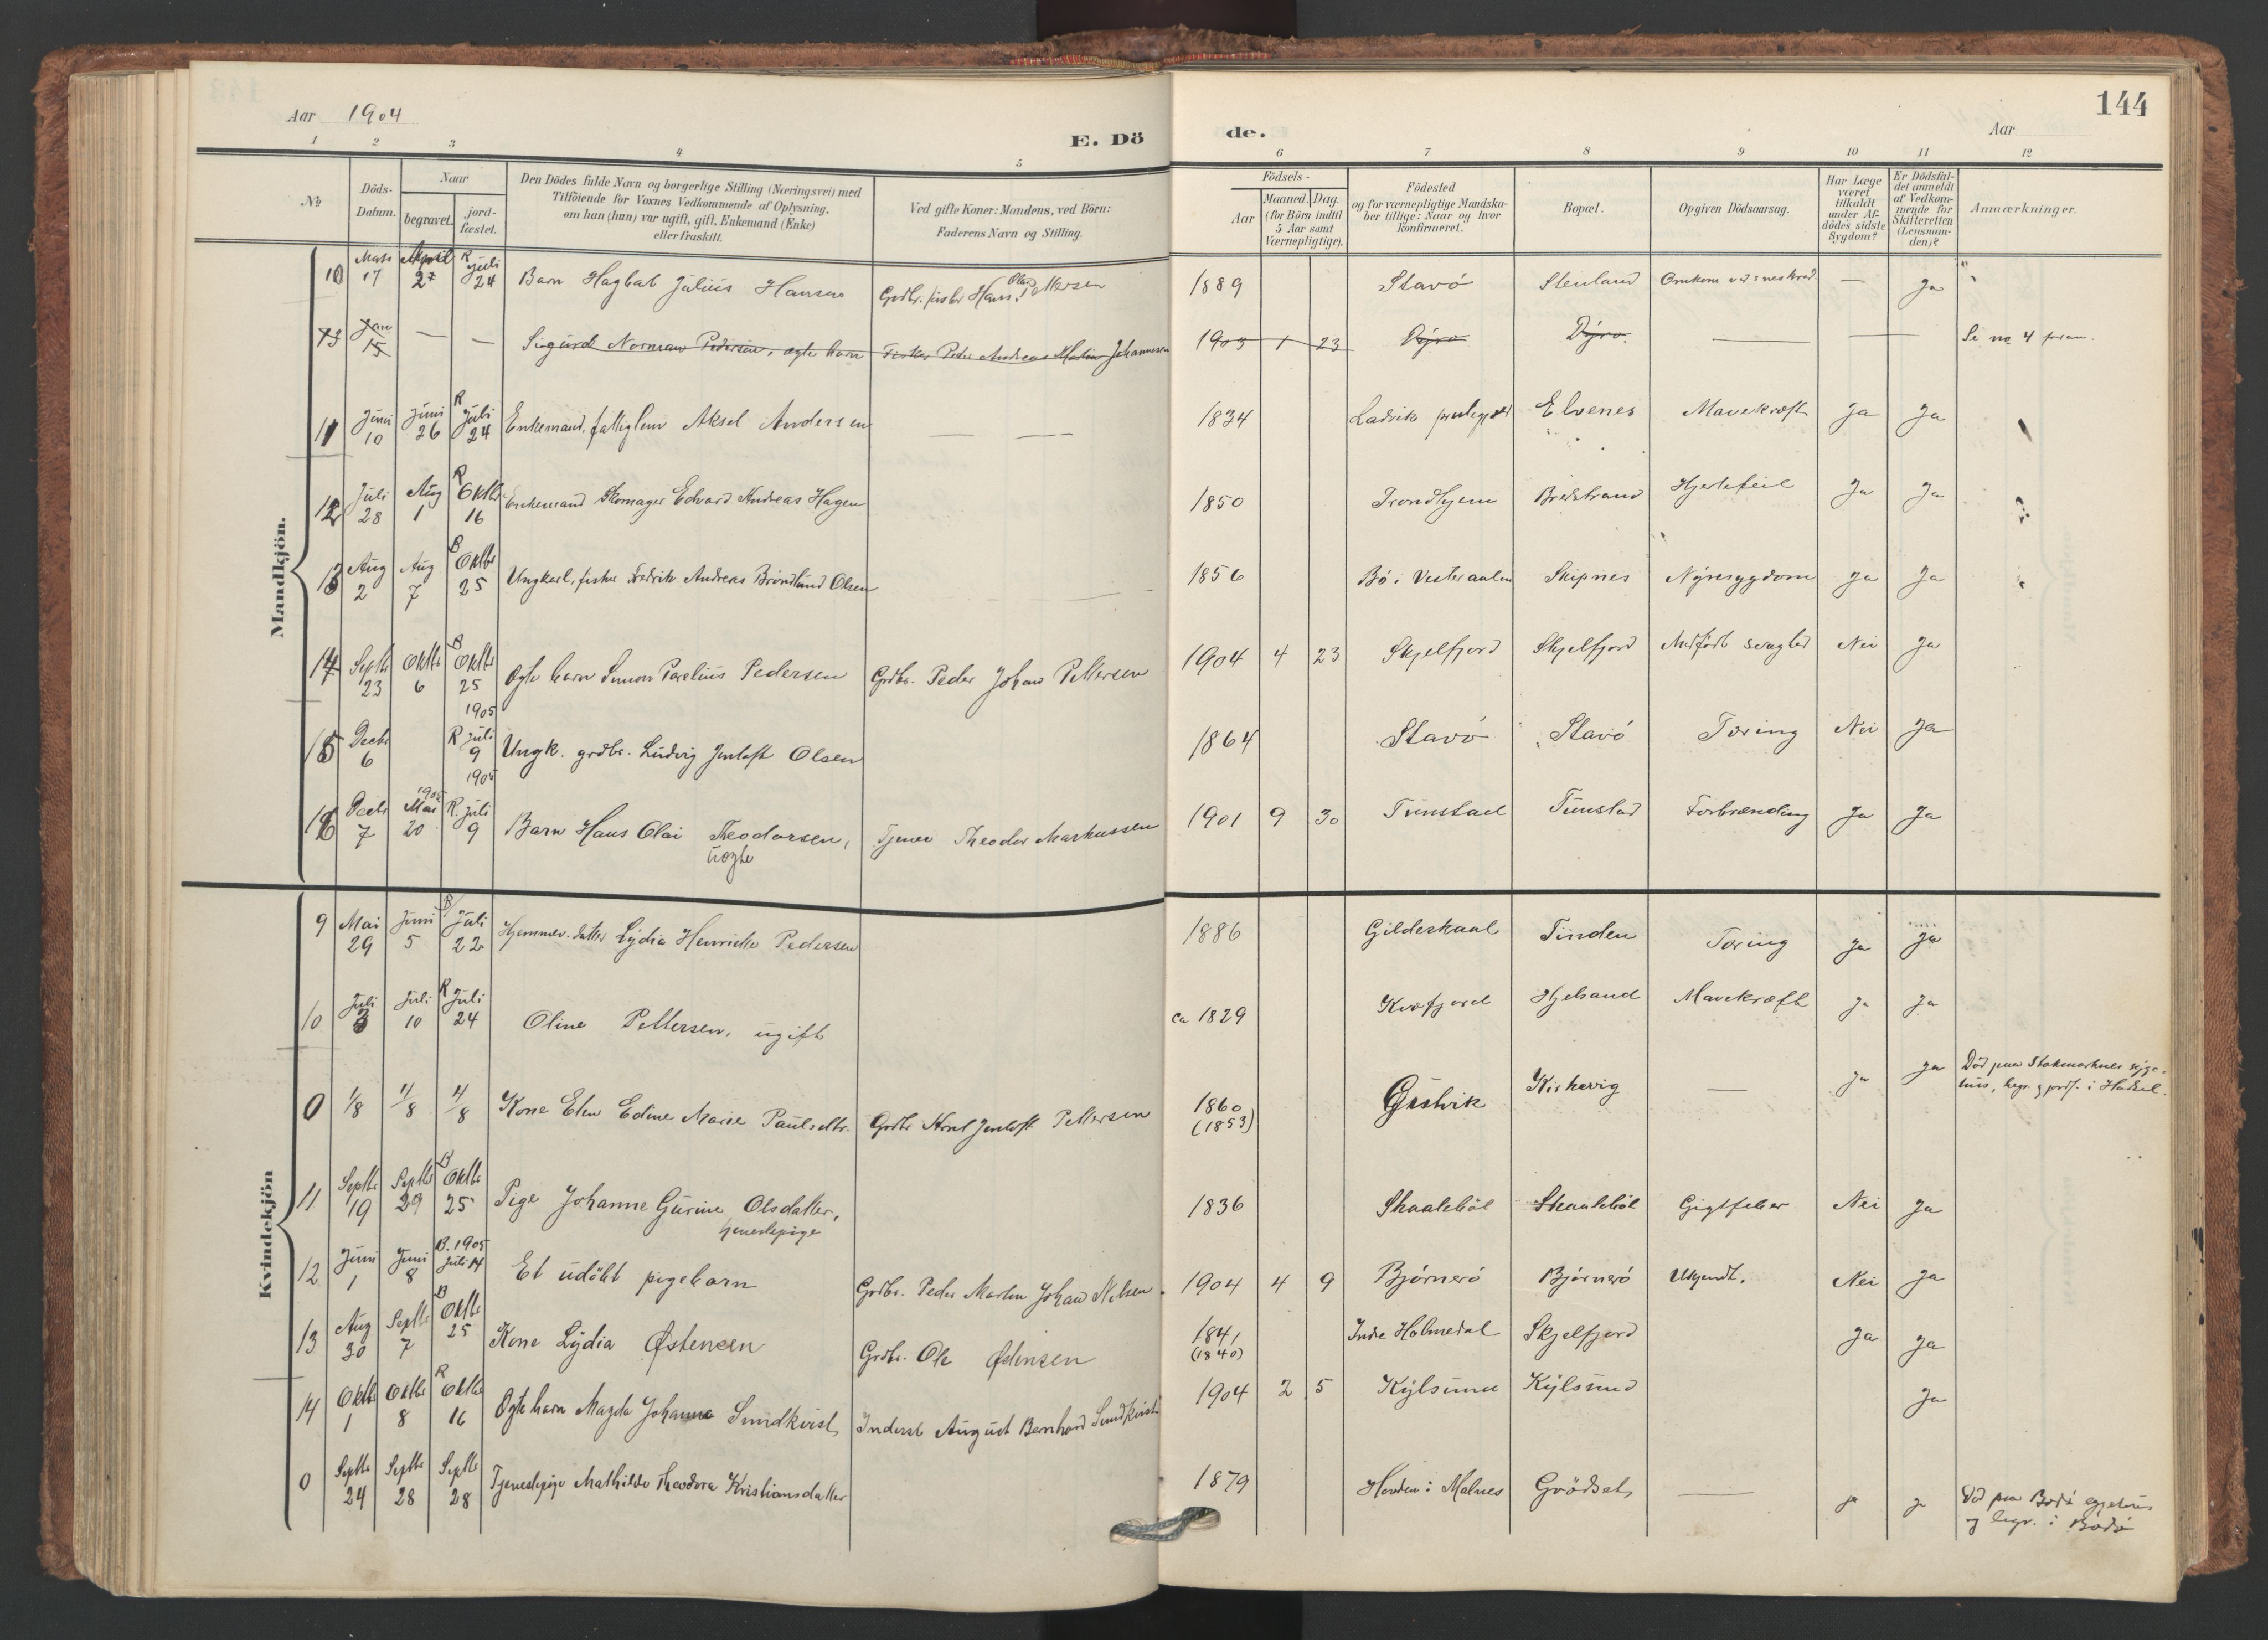 Aar 1904
E. Dö
de.
Aar
144
1 2 3 4 5 6 7 8 9 10 11 12
No
Döds-
Datum.
Naar
begravet.
jord-
fæstet.
Den Dödes fulde Navn og borgerlige Stilling (Næringsvei) med
Tilföiende for Voxnes Vedkommende af Oplysning,
om han (hun) var ugift, gift, Enkemand (Enke)
eller fraskilt.
Ved gifte Koner: Mandens, ved Börn:
Faderens Navn og Stilling.
Födsels-
Aar
Maaned. Dag.
(for Börn indtil
5 Aar samt
Værnepligtige).
Födested
og for værnepligtige Mandska-
ber tillige: Naar og hvor
konfirmeret.
Bopæl.
Opgiven Dödsaarsag.
Har Læge
været
tilkaldt
under Af-
dödes sidste
Sygdom?
Er Dödsfal-
det anmeldt
af Vedkom-
mende for
Skifteretten
(Lensman-
den)?
Anmærkninger.
Mandkjön.
10 Mars 17 April 27 R Juli 24 Barn Hagbat Julius Hansen Grdbr. fisker Hans Olai Pettersen 1889 Stavö Stenland Omkom ved — Ja
13 Jan 15 — — Sigurd Norman Pedersen, ægte barn Fisker Peder Andreas Martin Johannesen 1903 1 23 Dyrø Dyrø — — Se no 4 foran.
11 Juni 10 Juni 26 R Juli 24 Enkemand, fattiglem Aksel Andersen — — 1834 Ladvik Elvenes Mavekræft Ja Ja
12 Juli 28 Aug 1 R Oktbr 16 Enkemand Skomager Edvard Andreas Hagen 1850 Trondhjem Breistrand Hjertefeil Ja Ja
13 Aug 2 Aug 7 B Oktbr 25 Ungkarl, fisker Fredrik Andreas Bröndlund Olsen — 1856 Bö i Vesteraalen Skipnes Nyresygdom Ja Ja
14 Septbr 23 Oktbr 6 B Oktbr 25 Ægte barn Simon Parelius Pedersen Grdbr. Peder Johan Pettersen 1904 4 23 Skjelfjord Skjelfjord Medfödt svaghed Nei Ja
15 Decbr 6 1905 R Juli 9 Ungk. grdbr. Ludvig Jentoft Olsen 1864 Stavö Stavö Tæring Nei Ja
16 Decbr 7 1905 Mai 20 1905 R. Juli 9 Barn Hans Olai Theodorsen, Tjener Theodor Markussen 1901 9 30 Tunstad Tunstad Forbrænding Ja Ja
uægte
Kvindekjön
9 Mai 29 Juni 5 B Juli 22 Hjemmev. datter Lydia Henrikke Pedersen 1886 Gildeskaal Tinden Tæring Ja Ja
10 Juli 3 Juli 10 R Juli 24 Oline Pettersen, ugift ca 1829 Kvæfjord Hjelsand Mavekræft Ja Ja
0 1/8 4/8 4/8 Kone Elen Edine Marie Paulsdtr. Grdbr Jentoft Pettersen 1860 (1853) Gustvik Kirkevig — Ja Ja Död paa Stokmarknes syge-
hus, begr. og jordf. i Hadsel.
11 Septbr 19 Septbr 29 B Oktbr 25 Pige Johanne Gurine Olsdatter, 1836 Skaaleböl Skaaleböl Gigtfeber Nei Ja
tjenestepige
12 Juni 1 Juni 8 B. 1905 Juli 14 Et udöbt pigebarn Grdbr. Peder Martin Johan Nilsen 1904 4 9 Björnerö Björnerö Ukjendt. Nei Ja
13 Aug 30 Septbr 7 B Oktbr 25 Kone Lydia Østensen Grdbr. Ole Østensen 1841 (1840) Indre Holmedal Skjelfjord Ja Ja
14 Oktbr 1 Oktbr 8 R Oktbr 16 Ægte barn Magda Johanna Sundkvist Inderst August Bernhard Sundkvist 1904 2 5 Kylsund Kylsund Ja
0 Septbr 24 Septbr 28 Septbr 28 Tjenestepige Mathilde Theodora Kristiansdatter 1879 Hovden i Malnes Grödset — Ja Ja Död paa Bodö sygehus
og begr. i Bodö